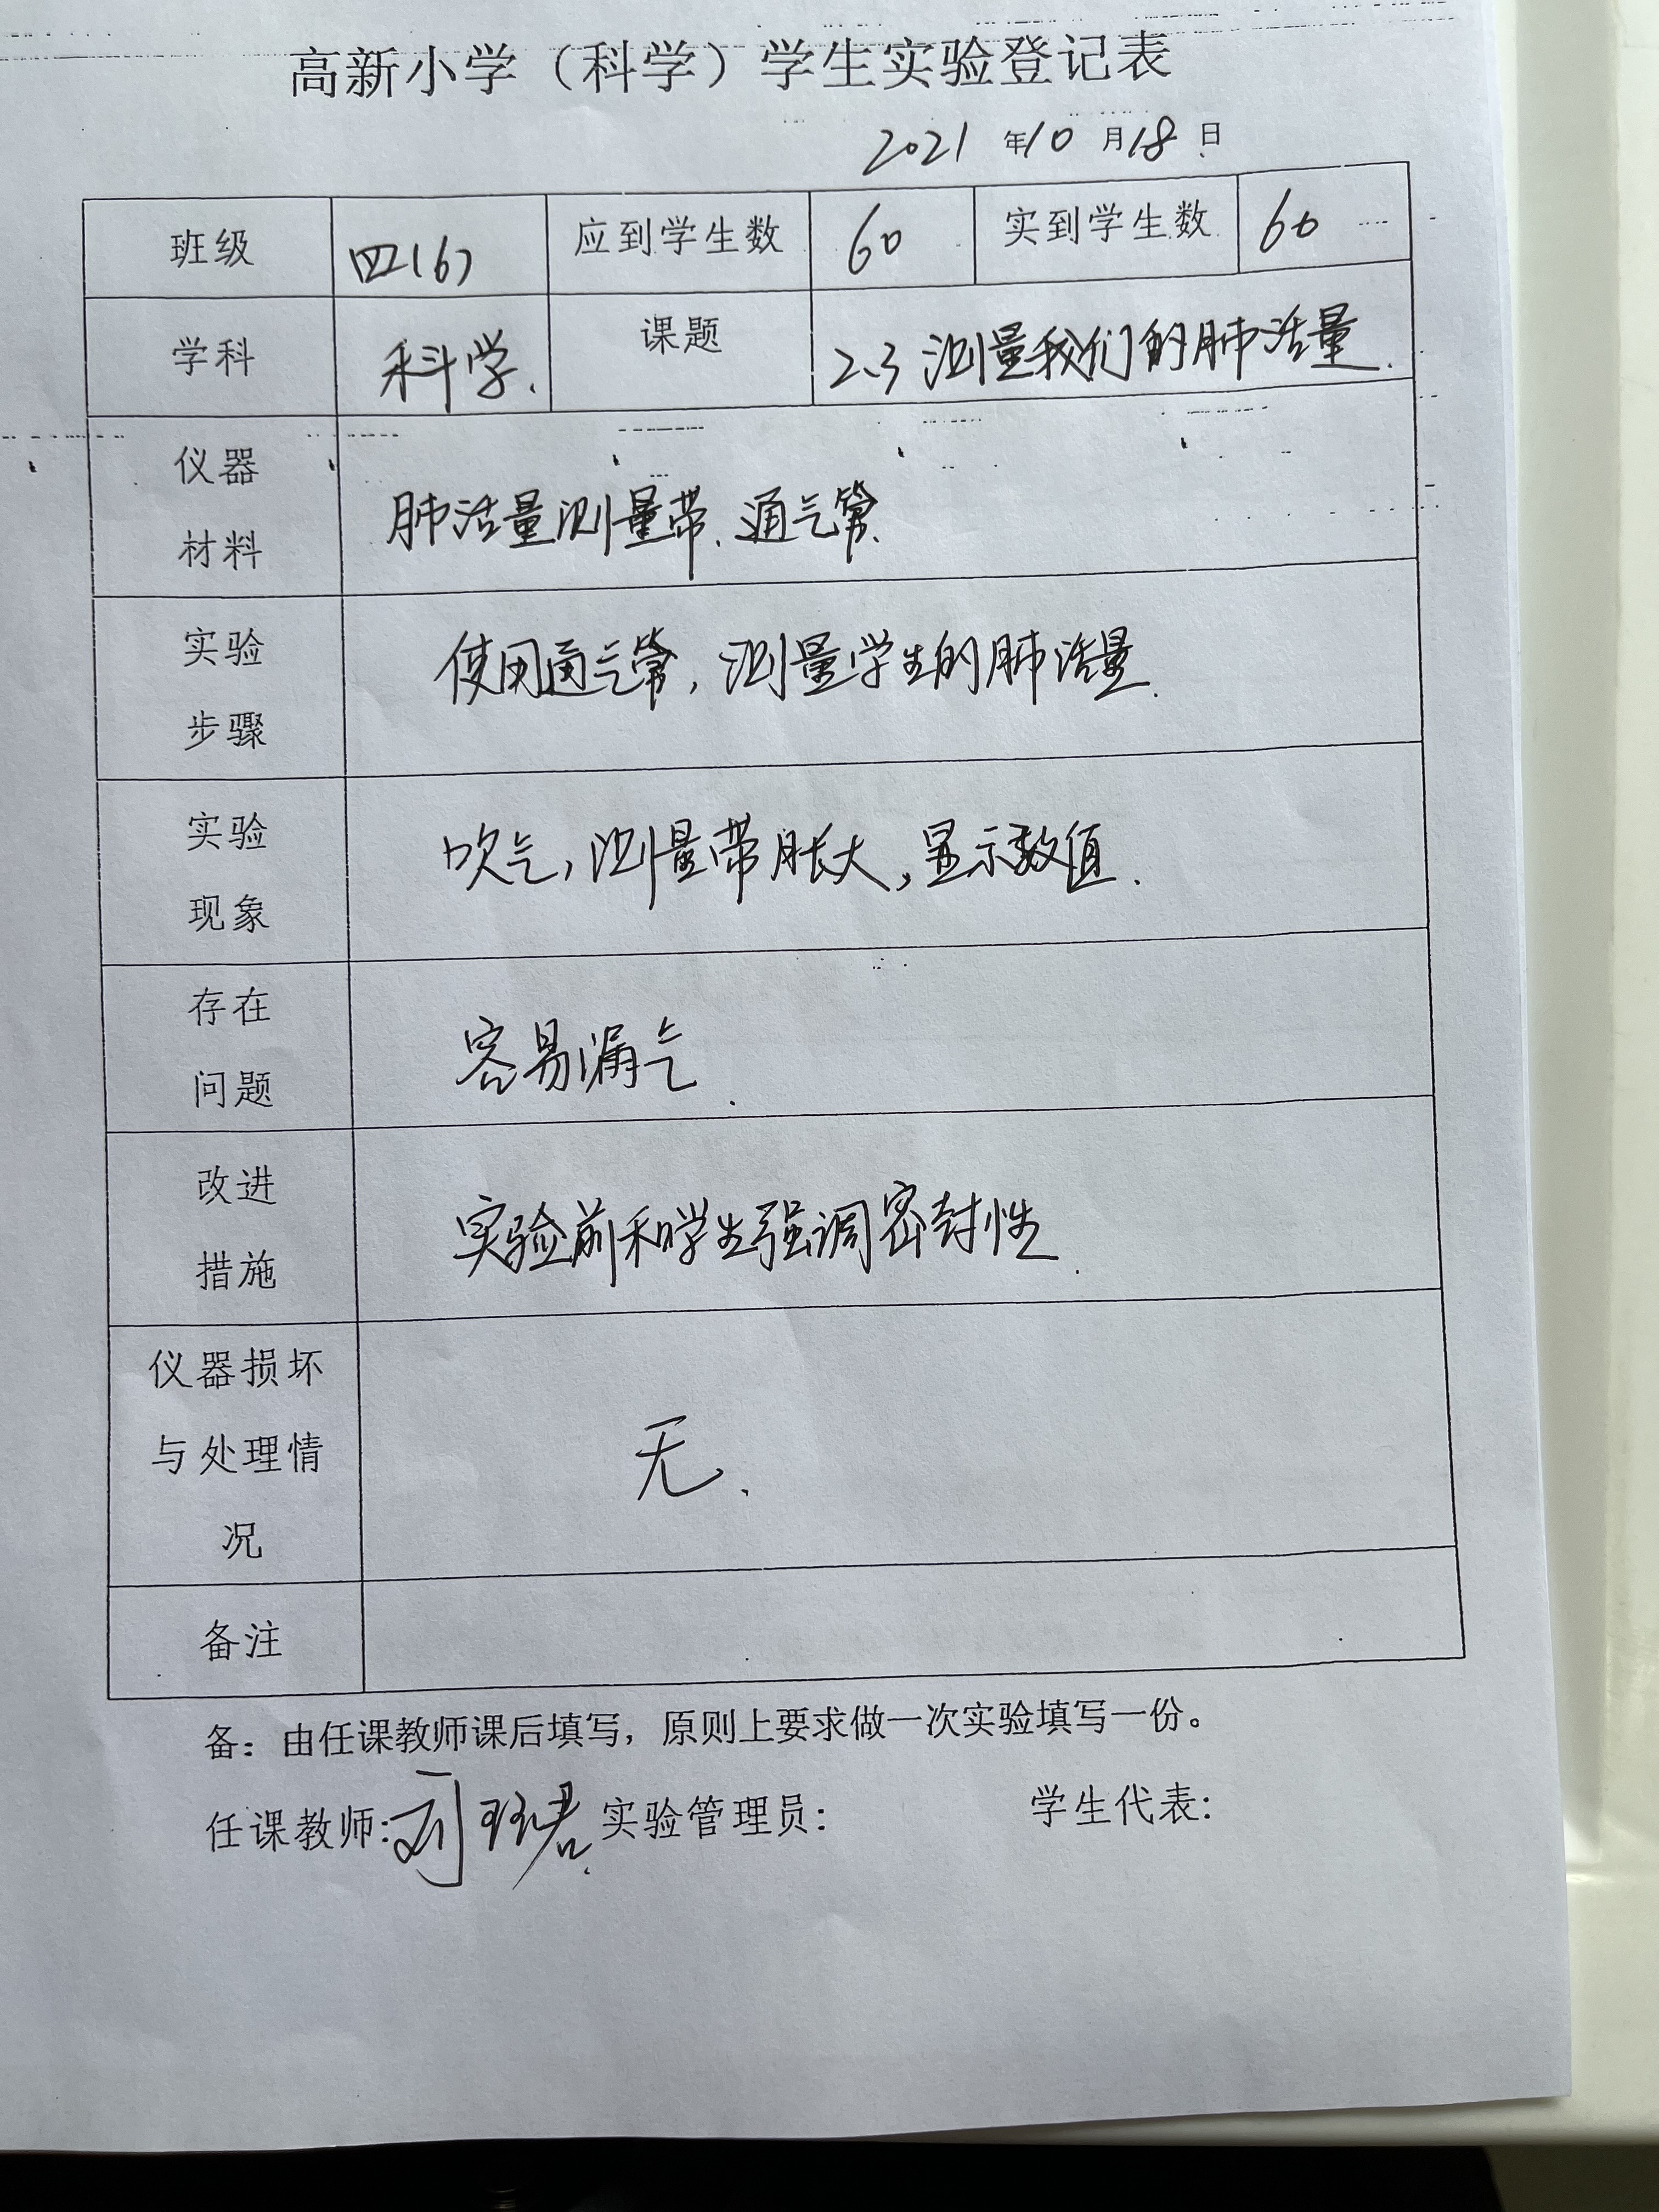 高新小学（科学）学生实验登记表
2021 年10 月18 日
班级 四(6) 应到学生数 60 实到学生数 60
学科 科学. 课题 2.3 测量我们的肺活量.
仪器
材料
肺活量测量带、通气管.
实验
步骤
使用通气管，测量学生的肺活量.
实验
现象
吹气，测量带胀大，显示数值.
存在
问题
容易漏气.
改进
措施
实验前和学生强调密封性.
仪器损坏
与处理情
况
无.
备注
备：由任课教师课后填写，原则上要求做一次实验填写一份。
任课教师: 刘 君 实验管理员: 学生代表: